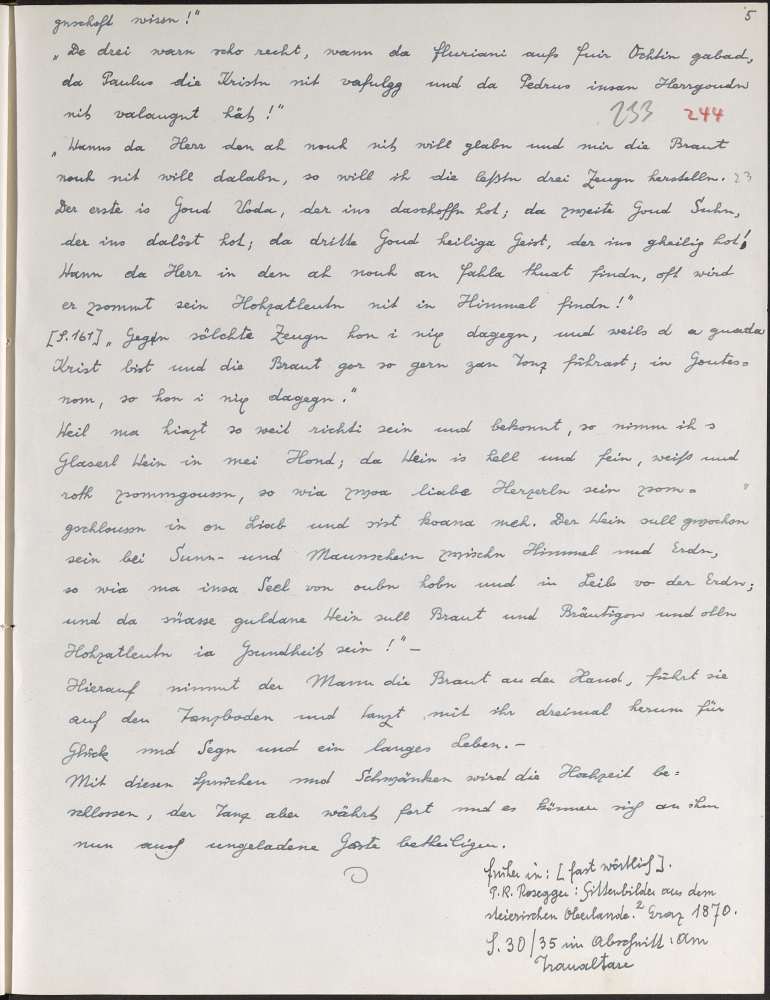 5
gnschoft wissn!"
„De drei warn scho recht, wann da Fluriani aufs Fuir Ochtin gabad,
da Paulus die Kristn nit vafulgg und da Pedrus insan Herrgoudn
nit valaugnt hät!"
233 244
„Wanns da Herr den ah nouh nit will glabn und mir die Braut
nouh nit will dalabn, so will ih die leßtn drei Zeugn herstelln. 23
Der erste is Goud Voda, der ins daschoffn hot; da zweite Goud Suhn,
der ins dalöst hot; da dritte Goud heiliga Geist, der ins gheilig hot!
Wann da Herr in den ah nouh an Fahla thuat findn, oft wird
er zsommt sein Hohzatleutn nit in Himmel findn!"
[S.161] „Gegen sölchte Zeugn hon i nix dagegn, und weils d a guada
Krist bist und die Braut gor so gern zan Tonz führast; in Goutes=
nom, so hon i nix dagegn."
Weil ma hiazt so weit richti sein und bekonnt, so nimm ih s
Glaserl Wein in mei Hond; da Wein is hell und fein, weiß und
roth zsommgoussn, so wia zwoa liabe Herzerln sein zsom=
gschloussn in on Liab und sist koana meh. Der Wein sull gwochsn
sein bei Sunn- und Maunschein zwischn Himmel und Erdn,
so wia ma insa Seel von oubn hobn und in Leib vo der Erdn;
und da süasse guldane Wein sull Braut und Bräutigon und olln
Hohzatleutn ia Gsundheit sein!" –
Hierauf nimmt der Mann die Braut an der Hand, führt sie
auf den Tanzboden und tanzt mit ihr dreimal herum für
Glück und Segn und ein langes Leben. –
Mit diesen Sprüchen und Schwänken wird die Hochzeit be=
schlossen, der Tanz aber währt fort und es können sich an ihm
nun auch ungeladene Gäste betheiligen.
früher in: [fast wörtlich].
P.K. Rosegger: Sittenbilder aus dem
steierischen Oberlande.² Graz 1870.
S. 30/35 im Abschnitt: Am
Traualtare